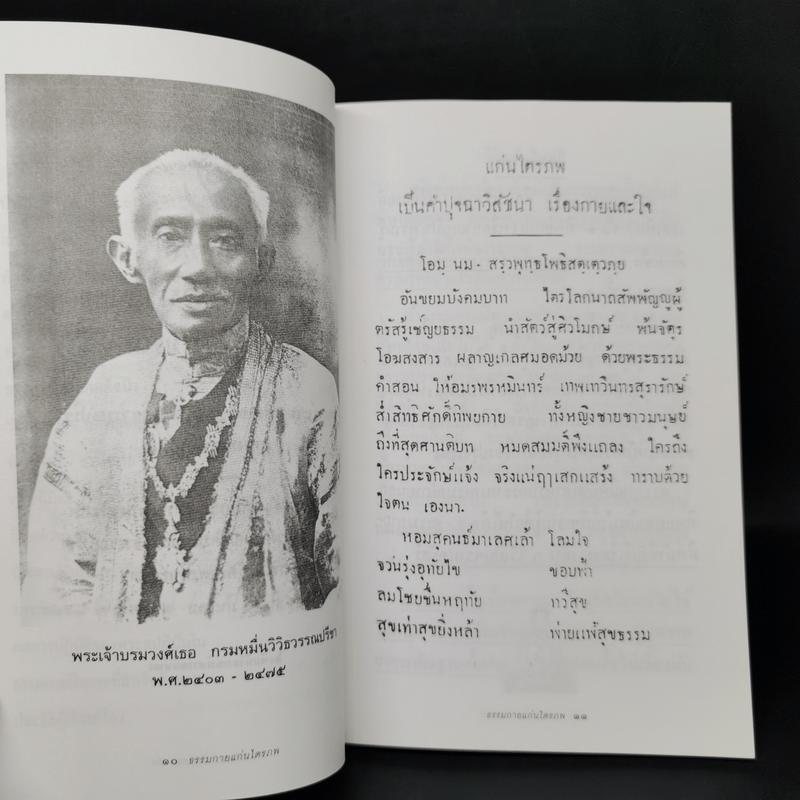 พระเจ้าบรมวงศ์เธอ กรมหมื่นวิวิธวรรณปรีชา
พ.ศ.๒๔๐๓ - ๒๔๗๕
๑๐ ธรรมกายแก่นไตรภพ
แก่นไตรภพ
เป็นคำปุจฉาวิสัชนา เรื่องกายและใจ
โอมฺ นม - สรฺวพุทฺธโพธิสตฺเตฺวภฺย
อันขยมบังคมบาท ไตรโลกนาถสัพพัญญูผู้
ตรัสรู้เชญยธรรม นำสัตว์สู่ศิวโมกษ์ พ้นจัตุร
โอฆสงสาร ผลาญเกลศมอดม้วย ด้วยพระธรรม
คำสอน ให้อมรพรหมินทร์ เทพเทวินทรสุรารักษ์
ส่ำสิทธิศักดิ์ทิพยกาย ทั้งหญิงชายชาวมนุษย์
ถึงที่สุดศานติบท หมดสมมติพึงแถลง ใครถึง
ใครประจักษ์แจ้ง จริงแน่ฤๅเสกแสร้ง ทราบด้วย
ใจตน เองนา.
หอมสุคนธ์มาเลศเล้า โลมใจ
จวนรุ่งอุทัยไข ขอบฟ้า
ลมโชยชื่นหฤทัย ทวีสุข
สุขเท่าสุขยิ่งหล้า พ่ายแพ้สุขธรรม
ธรรมกายแก่นไตรภพ ๑๑